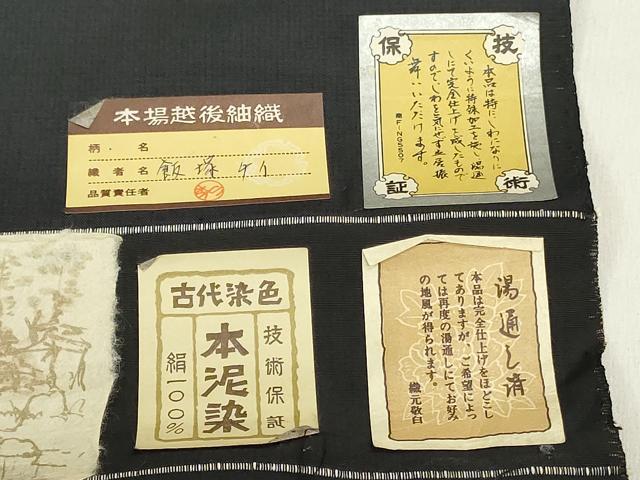 本場越後紬織
柄・名
織者名 飯塚ケイ
品質責任者
技術保証
本品は特に、しわになりに
くいように特殊加工を施し湯通
しにて完全仕上げを成したもので
すので、しわを気にせず立居振
舞いいただけます。
古代染色
技術保証
本泥染
絹一〇〇%
湯通し済
本品は完全仕上げをほどこし
てありますが、ご希望によっ
ては再度の湯通しにてお好み
の地風が得られます。
織元敬白